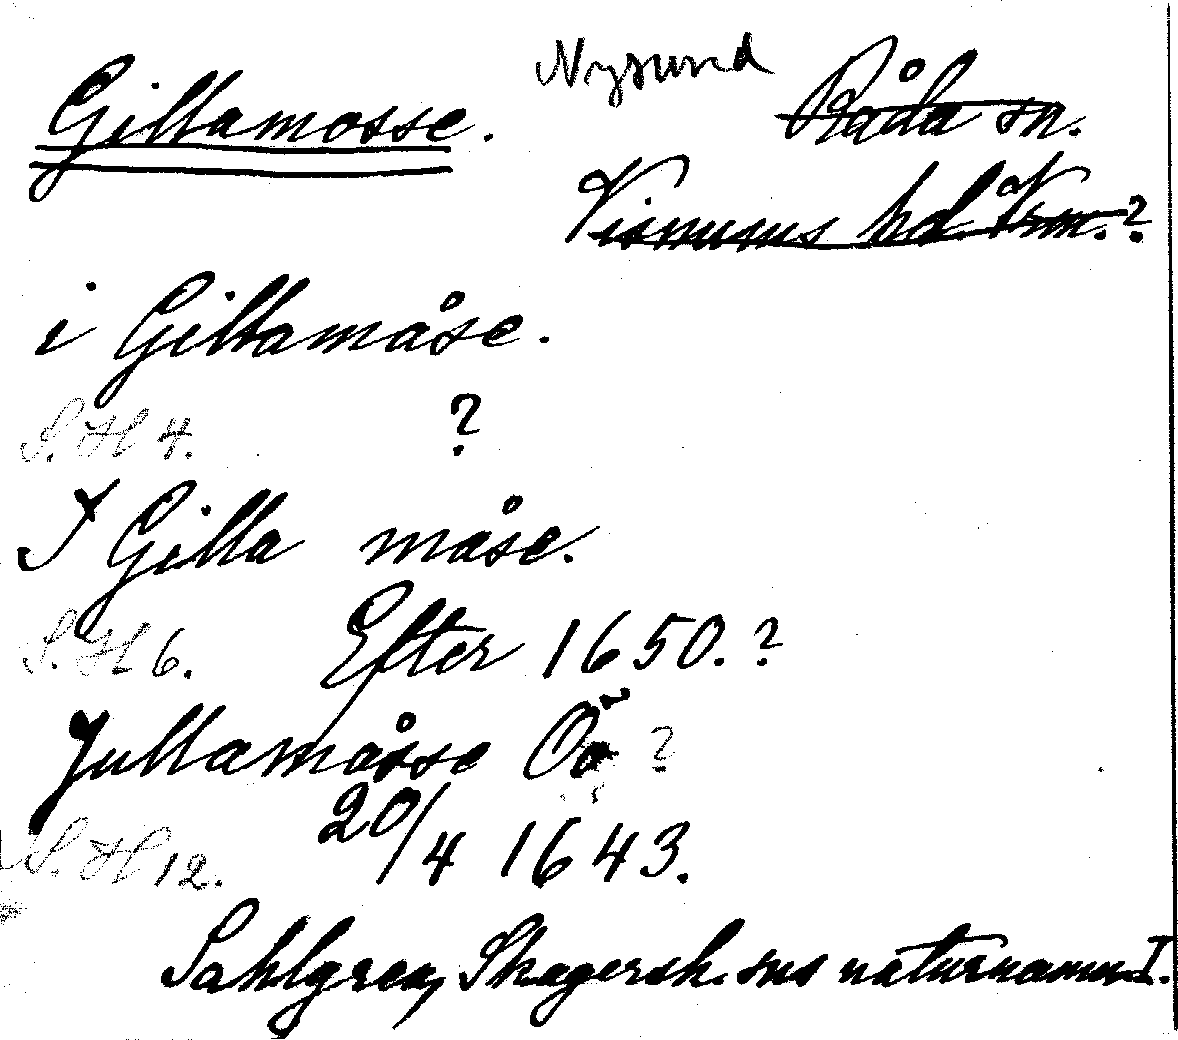 Gillamosse. Nysund Råda sn.
Visnums hd. Vrm.?
i Gillamåse.
S. H 4. ?
I Gilla måse.
S. H 6. Efter 1650.?
Jullamåsse Öö ?
S. H 12. 20/4 1643.
Sahlgren, Skagersh. sns naturnamn I.